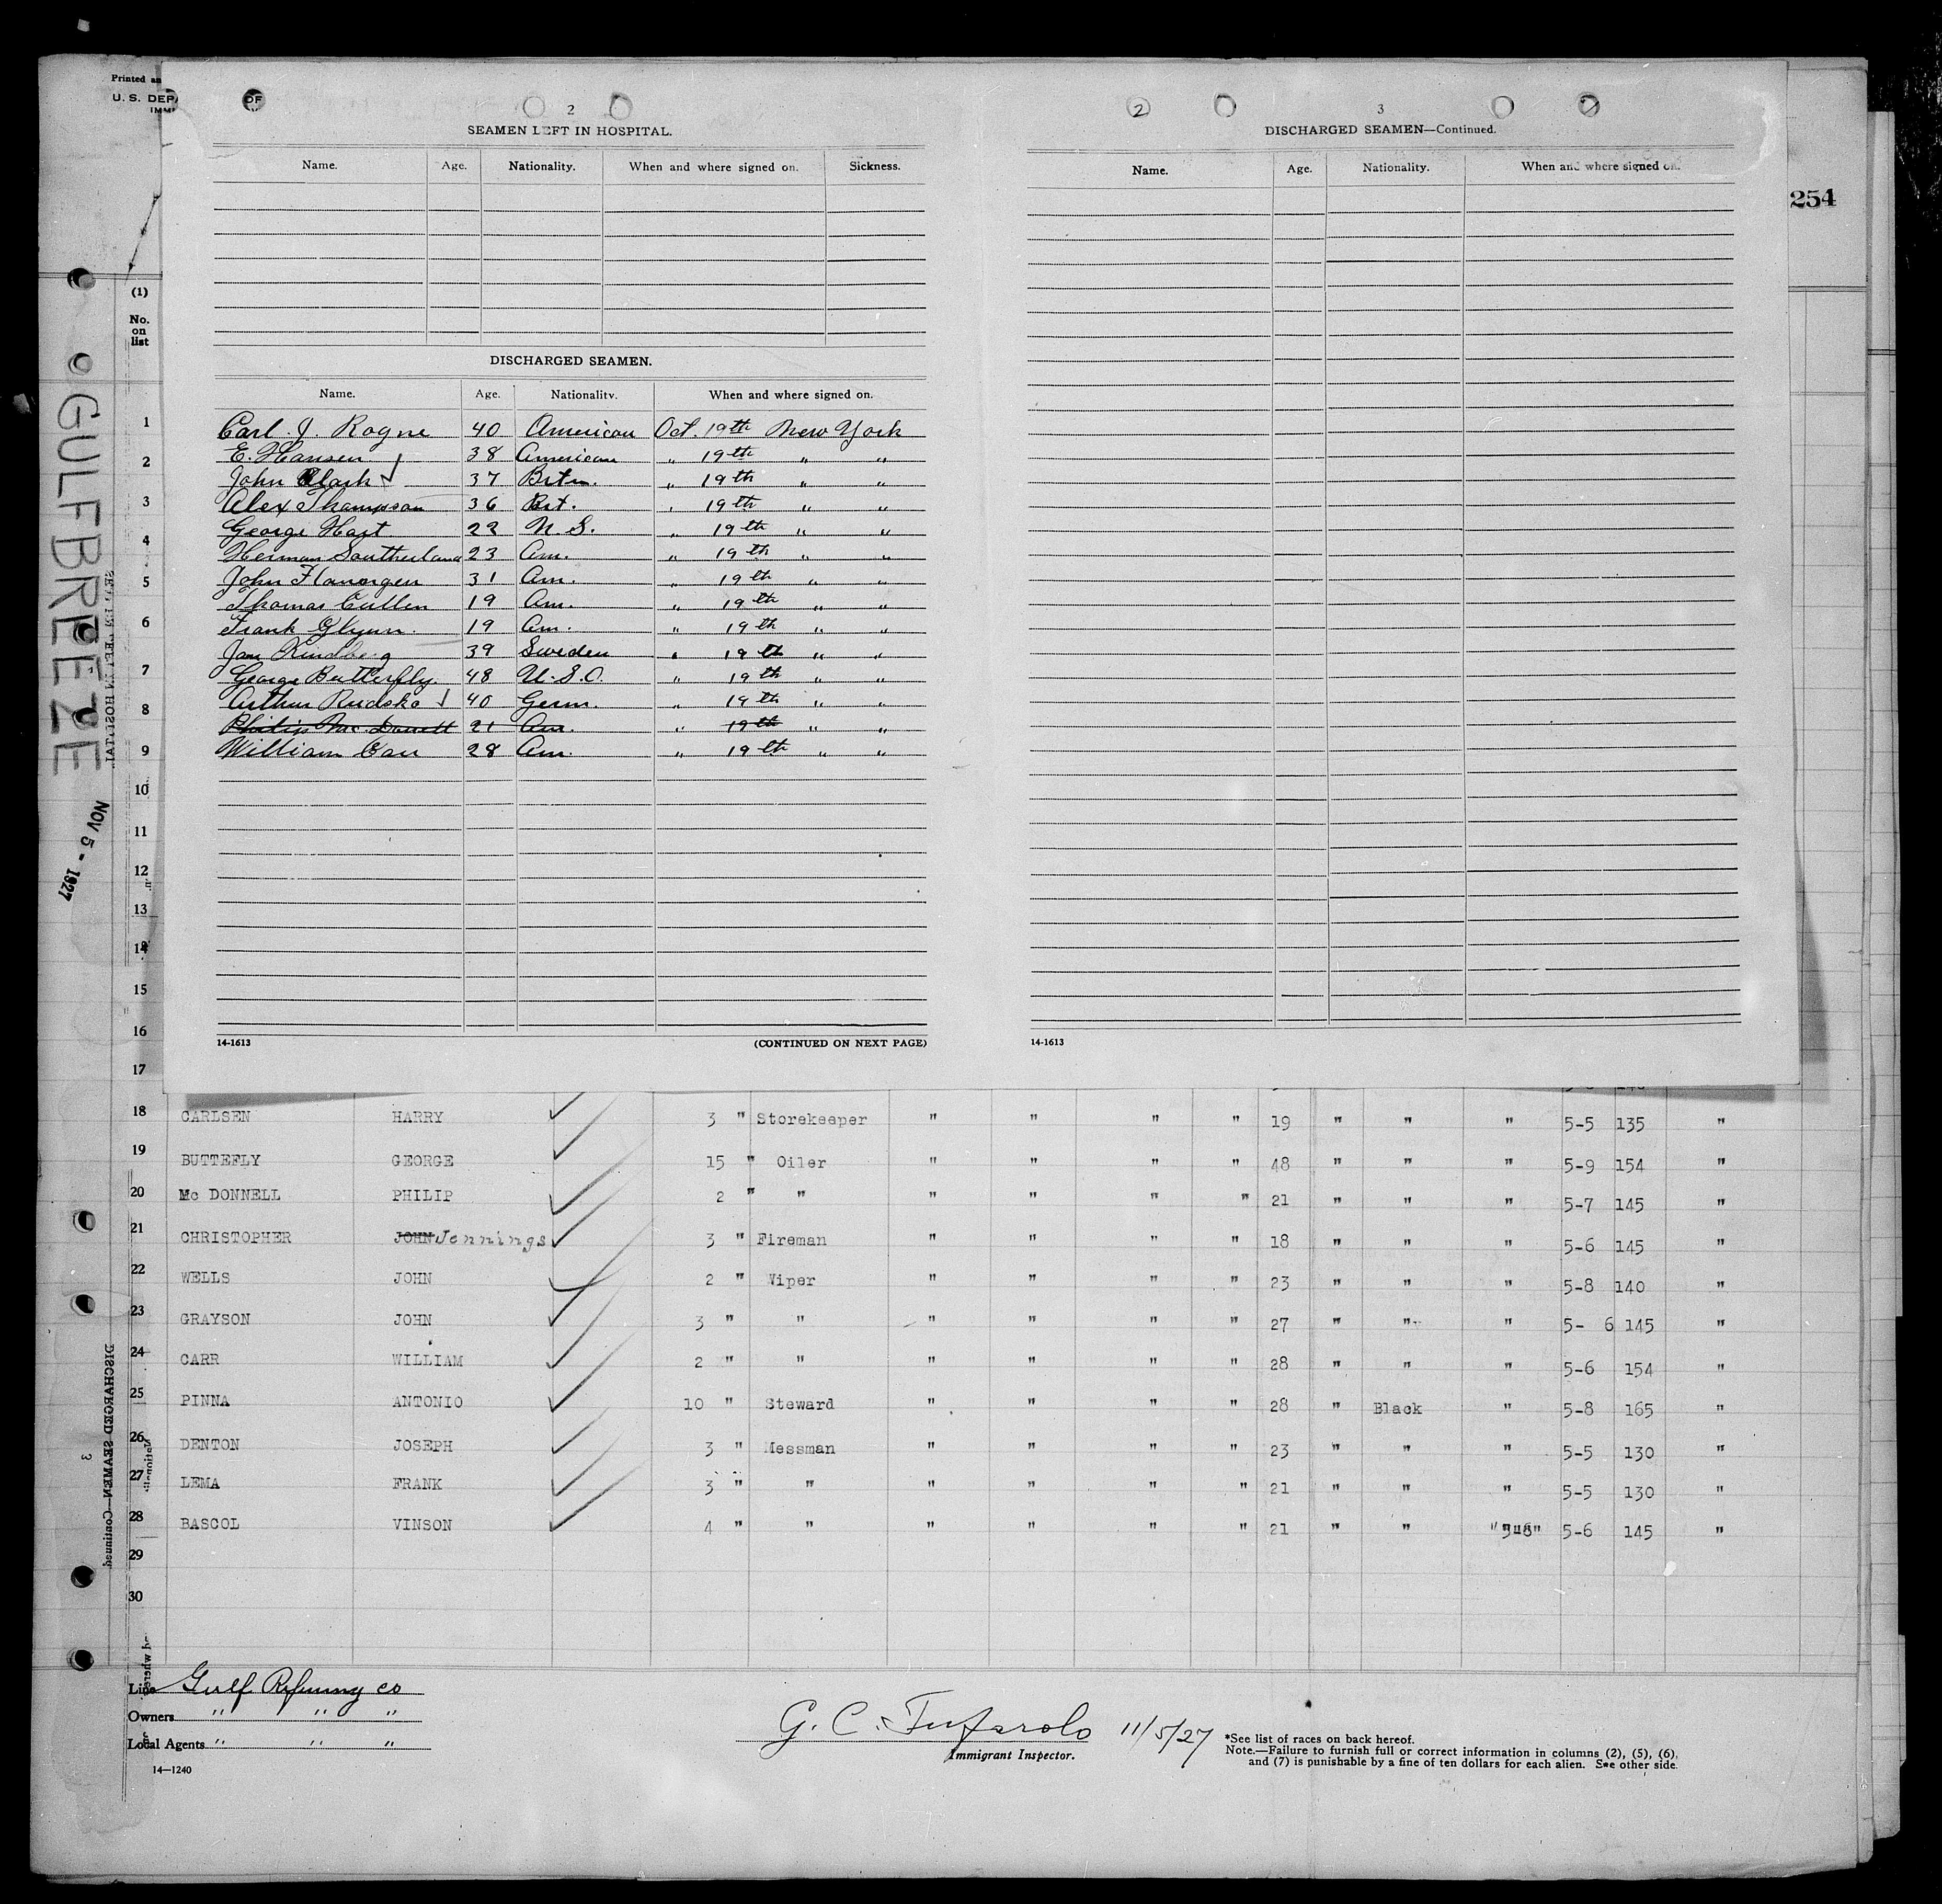 Printed an
U. S. DEPA OF
IMMI
2
SEAMEN LEFT IN HOSPITAL.
Name. Age. Nationality. When and where signed on. Sickness.
DISCHARGED SEAMEN.
Name. Age. Nationality. When and where signed on.
Carl. J. Rogne 40 American Oct. 19th New York
E. Hansen 38 American " 19th " "
John Clark 37 Brtn. " 19th " "
Alex Thompson 36 Brt. " 19th " "
George Hart 22 N. S. " 19th " "
Herman Southerland 23 Am. " 19th " "
John Flanargen 31 Am. " 19th " "
Thomas Cullen 19 Am. " 19th " "
Frank Glynn. 19 Am. " 19th " "
Jan Rindberg 39 Sweden " 19th " "
George Butterfly 48 U.S.O. " 19th " "
Arthur Rudsko 40 Germ. " 19th " "
Philip Mc. Donell 21 Am. " 19th " "
William Carr 28 Am. " 19th " "
14-1613 (CONTINUED ON NEXT PAGE)
2 3
DISCHARGED SEAMEN—Continued.
Name. Age. Nationality. When and where signed on.
14-1613
254
(1)
No. on list
1
2
3
4
5
6
7
8
9
10
11
12
13
14
15
16
17
GULFBREEZE
NOV 5 - 1927
18 CARLSEN HARRY 3 " Storekeeper " " " " 19 " " " 5-5 135 "
19 BUTTEFLY GEORGE 15 " Oiler " " " " 48 " " " 5-9 154 "
20 Mc DONNELL PHILIP 2 " " " " " " 21 " " " 5-7 145 "
21 CHRISTOPHER JOHN Jennings 3 " Fireman " " " " 18 " " " 5-6 145 "
22 WELLS JOHN 2 " Wiper " " " " 23 " " " 5-8 140 "
23 GRAYSON JOHN 3 " " " " " " 27 " " " 5- 6 145 "
24 CARR WILLIAM 2 " " " " " " 28 " " " 5-6 154 "
25 PINNA ANTONIO 10 " Steward " " " " 28 " Black " 5-8 165 "
26 DENTON JOSEPH 3 " Messman " " " " 23 " " " 5-5 130 "
27 LEMA FRANK 3 " " " " " " 21 " " " 5-5 130 "
28 BASCOL VINSON 4 " " " " " " 21 " " " 5-6 145 "
29
30
3
DISCHARGED SEAMEN—Continued.
Line Gulf Refining Co
Owners " " "
Local Agents " " "
14—1240
G. C. Tufarolo 11/5/27
Immigrant Inspector.
*See list of races on back hereof.
Note.—Failure to furnish full or correct information in columns (2), (5), (6),
and (7) is punishable by a fine of ten dollars for each alien. See other side.